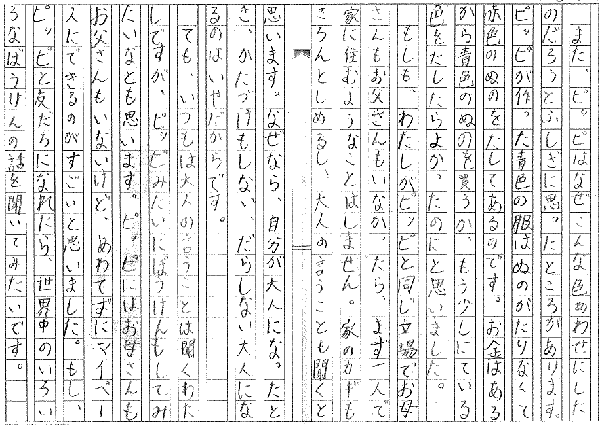 また、ピッピはなぜこんな色あわせにした
のだろうとふしぎに思ったところがあります。
ピッピが作った青色の服はぬのがたりなくて
赤色のぬのをたしてあるのです。お金はある
から青色のぬのを買うか、もう少しにている
色をたしたらよかったのにと思いました。
もしも、わたしがピッピと同じ立場でお母
さんもお父さんもいなかったら、まず一人で
家に住むようなことはしません。家のカギも
きちんとしめるし、大人の言うことも聞くと
思います。なぜなら、自分が大人になったと
き、かたづけもしない、だらしない大人にな
るのはいやだからです。
でも、いつもは大人の言うことは聞くわた
しですが、ピッピみたいにぼうけんもしてみ
たいなとも思います。ピッピにはお母さんも
お父さんもいないけど、あわてずにマイペー
スにできるのがすごいと思いました。もし、
ピッピと友だちになれたら、世界中のいろい
ろなぼうけんの話を聞いてみたいです。